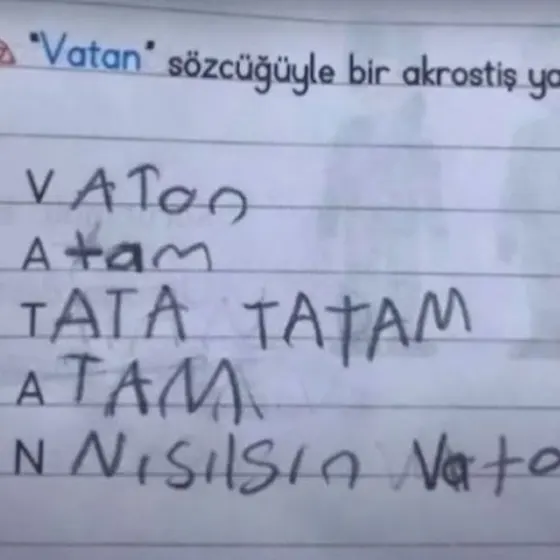 "Vatan" sözcüğüyle bir akrostiş ya
VATan
Atam
TATA TATAM
ATAM
N Nısılsın Vata